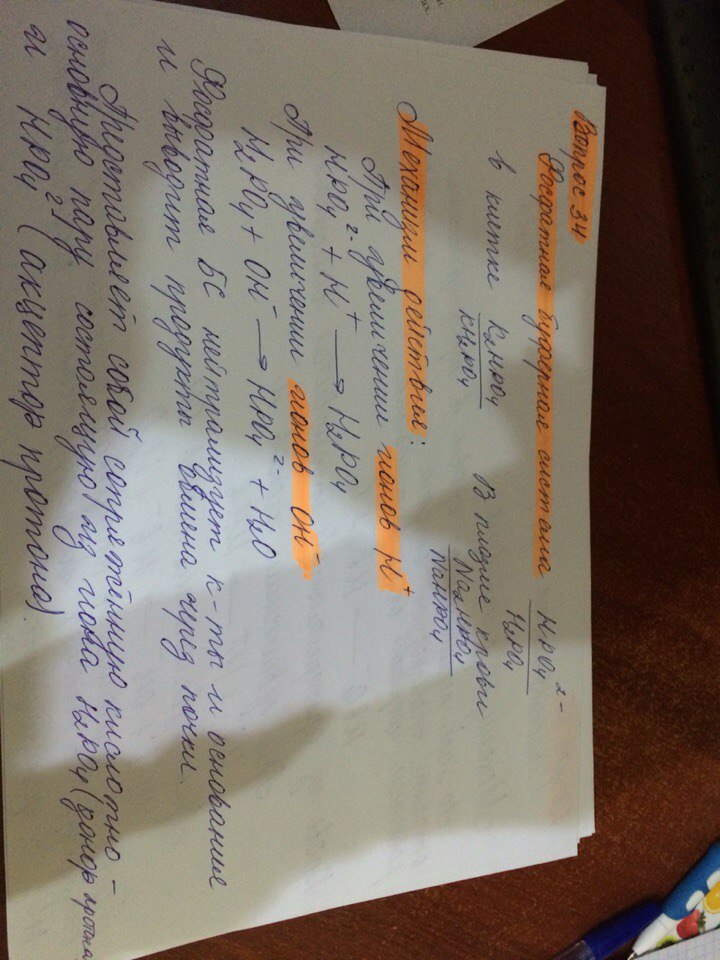 Вопрос 34
Фосфатная буферная система HPO4 2-
H2PO4
в клетке K2HPO4 В плазме крови Na2HPO4
KH2PO4 NaH2PO4
Механизм действия:
При увеличении ионов H+
HPO4 2- + H+ → H2PO4
При увеличении ионов OH-
H2PO4 + OH- → HPO4 2- + H2O
Фосфатная БС нейтрализует к-ты и основания
и выводит продукты обмена через почки.
Представляет собой сопряжённую кислотно-
основную пару состоящую из иона H2PO4 (донор протона
и HPO4 2- (акцептор протона)